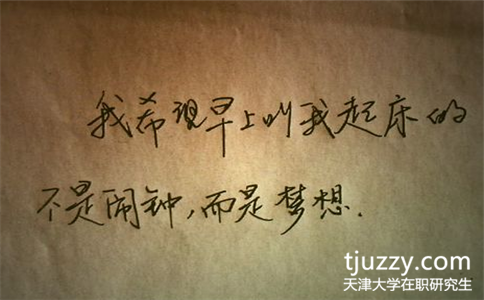 我希现早上叫我起床的
不是闹钟,而是梦想.
tjuzzy.com
天津大学在职研究生